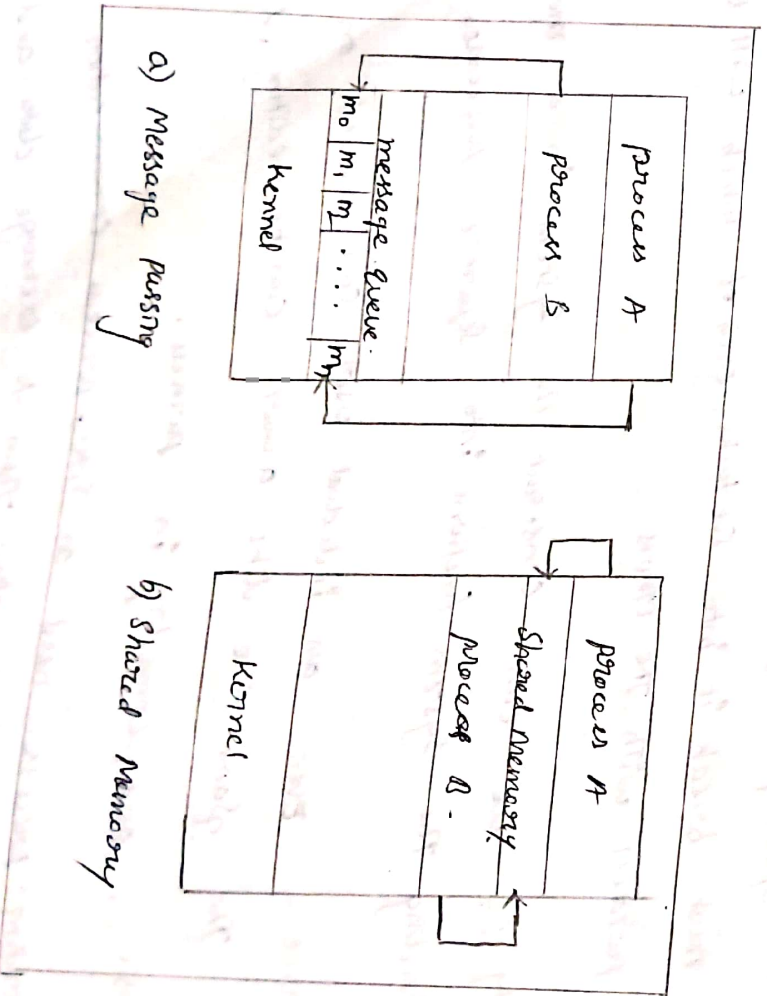 process A
process B
message queue.
m0 m1 m2 .... mn
Kernel
a) Message passing
process A
Shared Memory
process B.
Kernel
b) Shared Memory